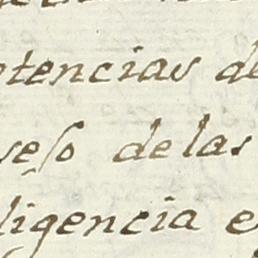 tencias de
seso de las
ligencia e